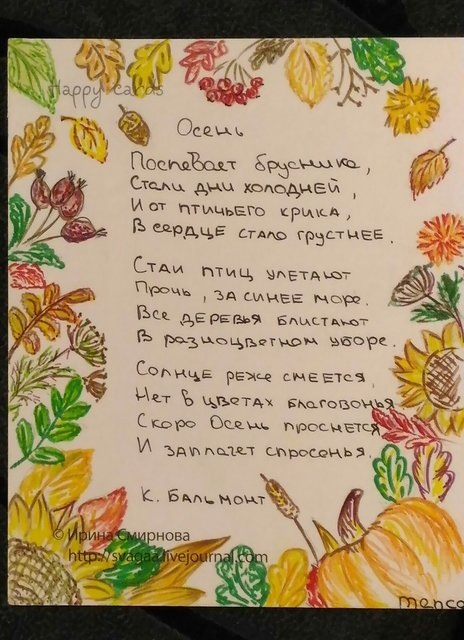 Happy cards
Осень
Поспевает брусника,
Стали дни холодней,
И от птичьего крика,
В сердце стало грустнее.
Стаи птиц улетают
Прочь, за синее море.
Все деревья блистают
В разноцветном уборе.
Солнце реже смеется,
Нет в цветах благовонья
Скоро Осень проснется
И заплачет спросонья.
К. Бальмонт
© Ирина Смирнова
http://svagaa.livejournal.com